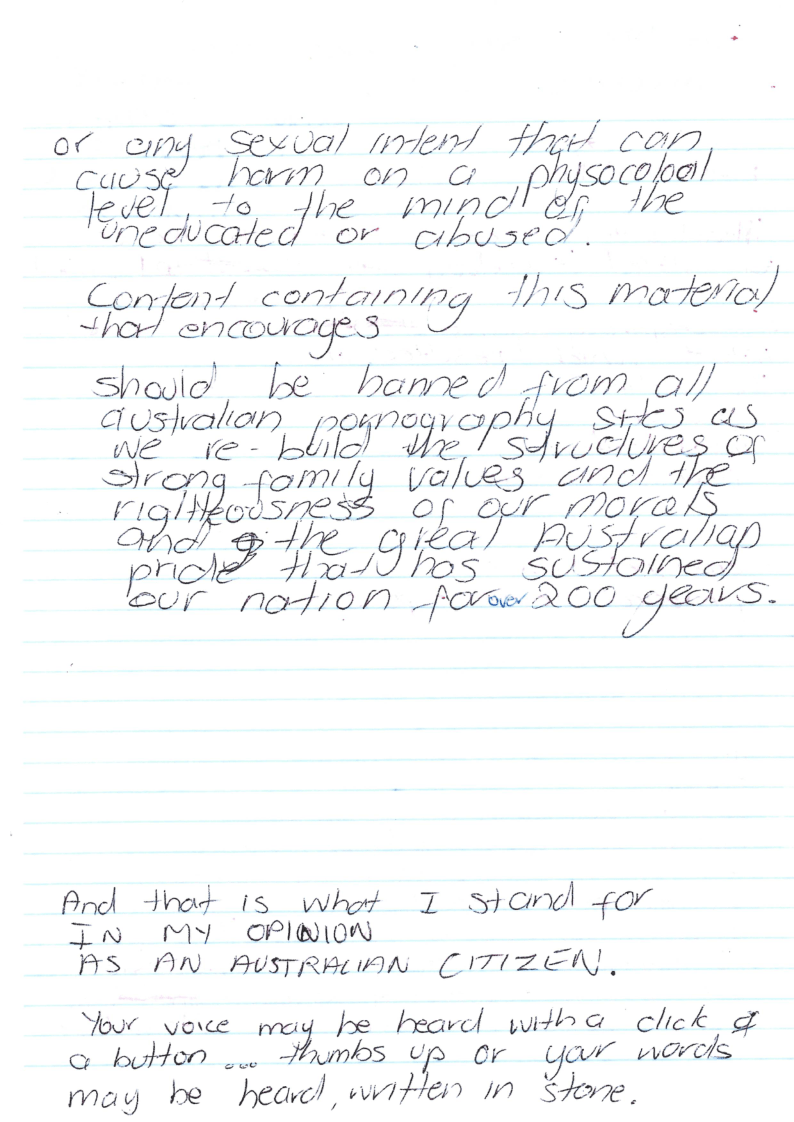 or any sexual intent that can
cause harm on a physocoloal
level, to the mind of, the
uneducated or abused.
Content containing this material
that encourages
should be banned from all
australian pornography sites as
we re-build the structures of
strong family values and the
righteousness of our morals
and the great Australian
pride that has sustained
our nation for over 200 years.
And that is what I stand for
IN MY OPINION
AS AN AUSTRALIAN CITIZEN.
Your voice may be heard with a click of
a button ... thumbs up or your words
may be heard, written in stone.